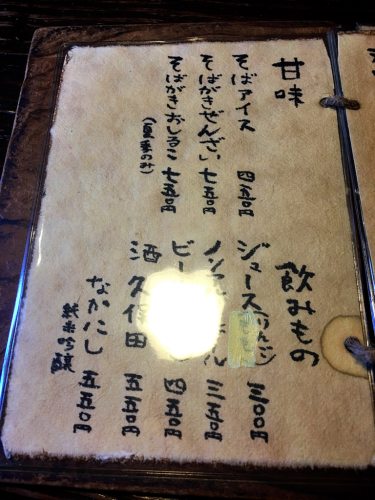 甘味
そばアイス 四五〇円
そばがきぜんざい 七五〇円
そばがきおしるこ 七五〇円
(夏季のみ)
飲みもの
ジュース(りんご) 三〇〇円
ノン ル 三五〇円
ビー 四五〇円
酒 久保田 五五〇円
なかにし 五五〇円
純米吟醸